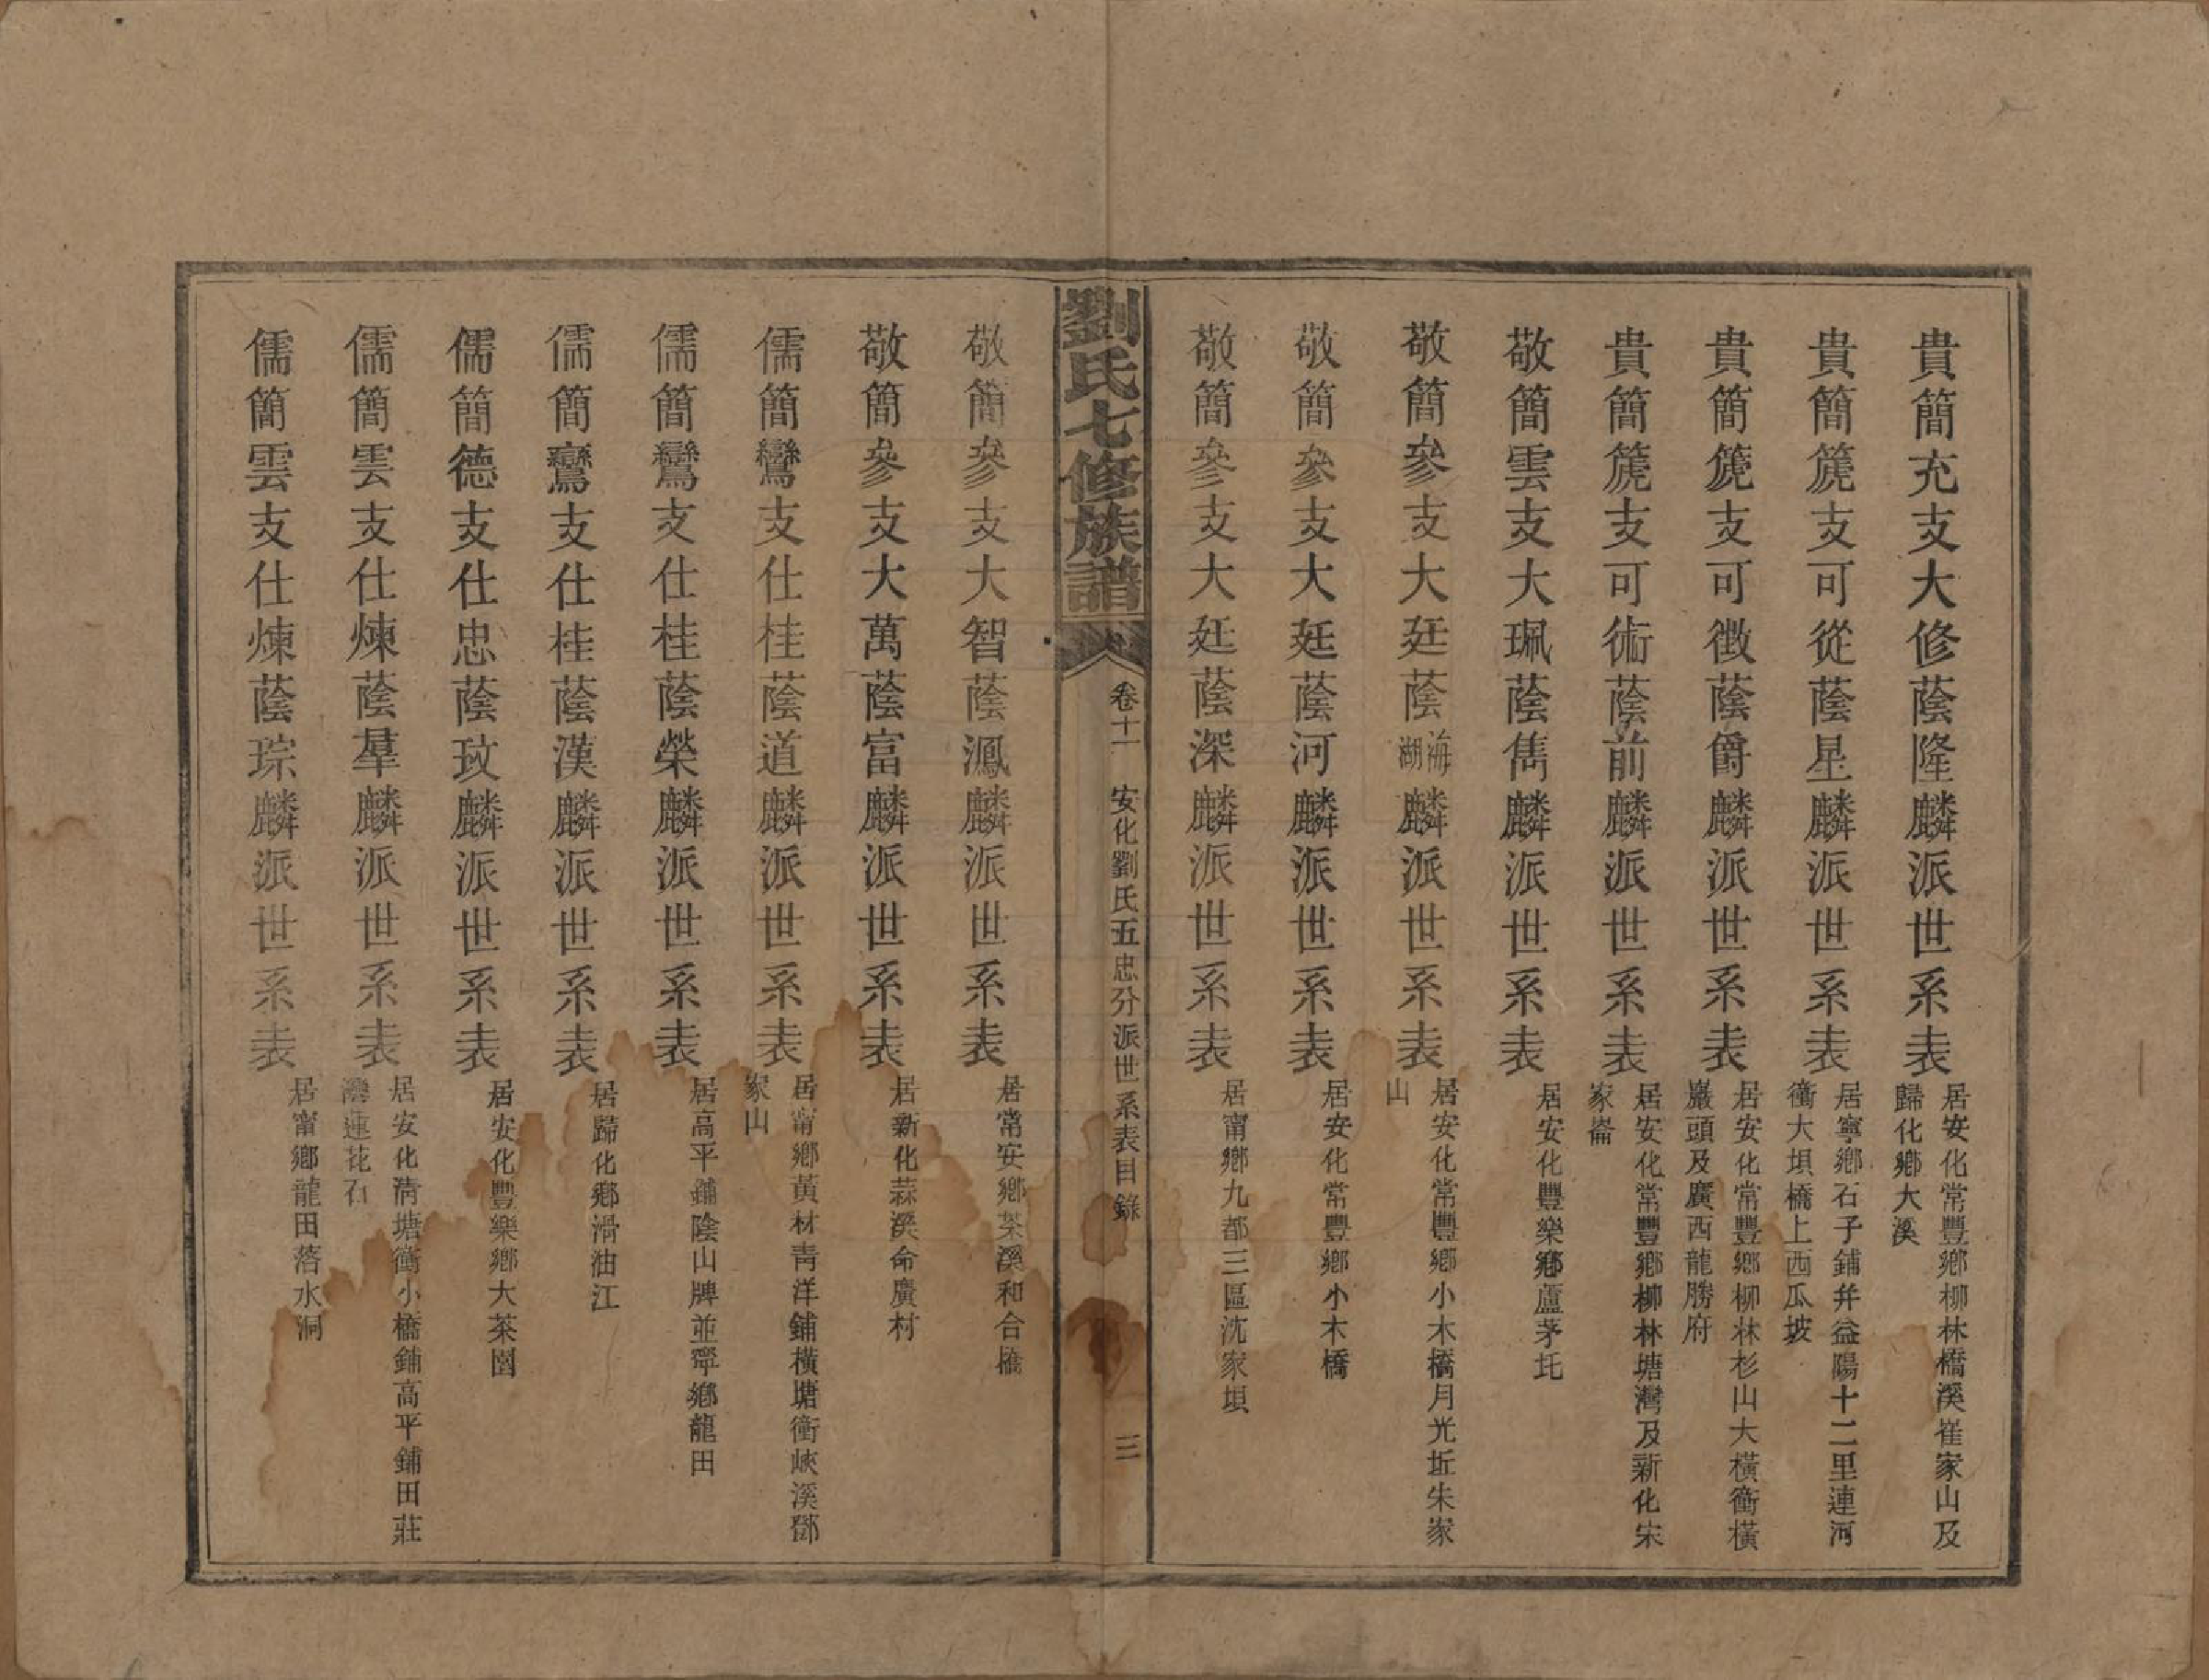 貴簡充支大修蔭隆麟派世系表
居安化常豐鄉柳林橋溪崔家山及
歸化鄉大溪
貴簡篪支可從蔭星麟派世系表
居寧鄉石子鋪幷益陽十二里連河
衝大垻橋上西瓜坡
貴簡篪支可徴蔭爵麟派世系表
居安化常豐鄉柳林杉山大橫衝橫
巖頭及廣西龍勝府
貴簡篪支可術蔭前麟派世系表
居安化常豐鄉柳林塘灣及新化宋
家崙
敬簡雲支大珮蔭雋麟派世系表
居安化豐樂鄉蘆茅坉
敬簡參支大廷蔭海湖麟派世系表
居安化常豐鄉小木橋月光坵朱家
山
敬簡參支大廷蔭河麟派世系表
居安化常豐鄉小木橋
敬簡參支大廷蔭深麟派世系表
居甯鄉九都三區沈家垻
劉氏七修族譜
卷十一 安化劉氏五忠分派世系表目錄
三
敬簡參支大智蔭鳳麟派世系表
居常安鄉茶溪和合橋
敬簡參支大萬蔭富麟派世系表
居新化蒜溪命廣村
儒簡鸞支仕桂蔭道麟派世系表
居甯鄉黃材靑洋鋪橫塘衝峽溪鄧
家山
儒簡鸞支仕桂蔭榮麟派世系表
居高平鋪陰山牌並寧鄉龍田
儒簡鸞支仕桂蔭漢麟派世系表
居歸化鄉滑油江
儒簡德支仕忠蔭玟麟派世系表
居安化豐樂鄉大茶園
儒簡雲支仕煉蔭羣麟派世系表
居安化淸塘衝小橋鋪高平鋪田莊
灣蓮花石
儒簡雲支仕煉蔭琮麟派世系表
居甯鄉龍田落水洞